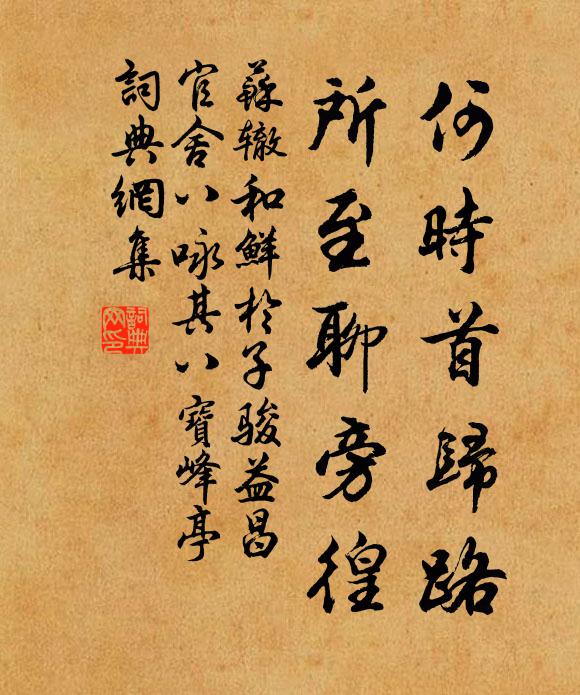 何時首歸路
所至聊旁徨
蘇辙和鮮於子駿益昌
官舍八咏其八寶峰亭
詞典網集
詞典網印